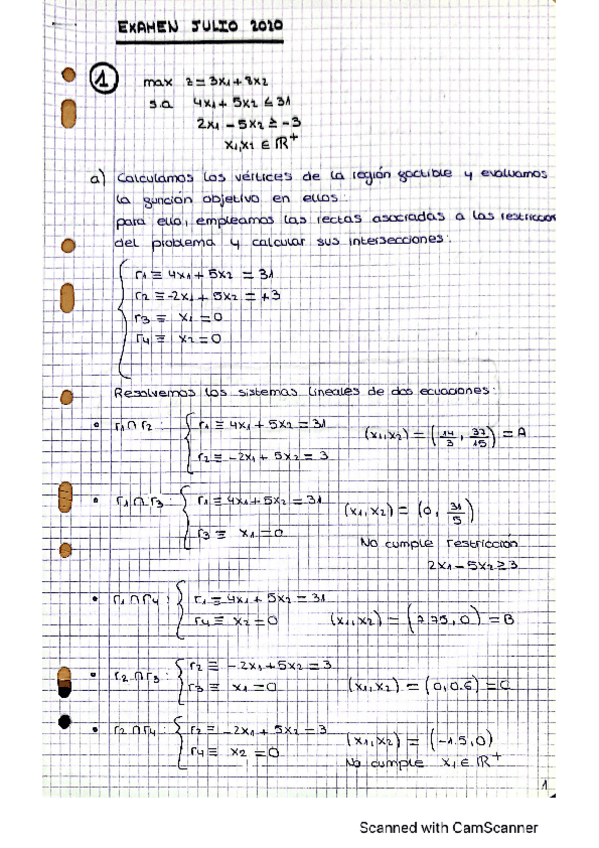 EXAMEN JULIO 2020
1
max z = 3x1 + 8x2
s.a 4x1 + 5x2 ≤ 31
2x1 - 5x2 ≥ -3
x1,x2 ∈ IR+
a) Calculamos los vértices de la región factible y evaluamos
la función objetivo en ellos:
para ello, empleamos las rectas asociadas a las restriccion
del problema y calcular sus intersecciones:
r1 ≡ 4x1 + 5x2 = 31
r2 ≡ -2x1 + 5x2 = +3
r3 ≡ x1 = 0
r4 ≡ x2 = 0
Resolvemos los sistemas lineales de dos ecuaciones:
• r1 ∩ r2 : { r1 ≡ 4x1 + 5x2 = 31 (x1,x2) = (14/3, 37/15) = A
r2 ≡ -2x1 + 5x2 = 3
• r1 ∩ r3 { r1 ≡ 4x1 + 5x2 = 31 (x1,x2) = (0, 31/5)
r3 ≡ x1 = 0 No cumple restriccion
2x1 - 5x2 ≥ 3
• r1 ∩ r4 : { r1 ≡ 4x1 + 5x2 = 31
r4 ≡ x2 = 0 (x1,x2) = (7.75, 0) = B
• r2 ∩ r3 : { r2 ≡ -2x1 + 5x2 = 3
r3 ≡ x1 = 0 (x1,x2) = (0, 0.6) = C
• r2 ∩ r4 : { r2 ≡ -2x1 + 5x2 = 3 (x1,x2) = (-1.5, 0)
r4 ≡ x2 = 0 No cumple x1 ∈ IR+
1
Scanned with CamScanner